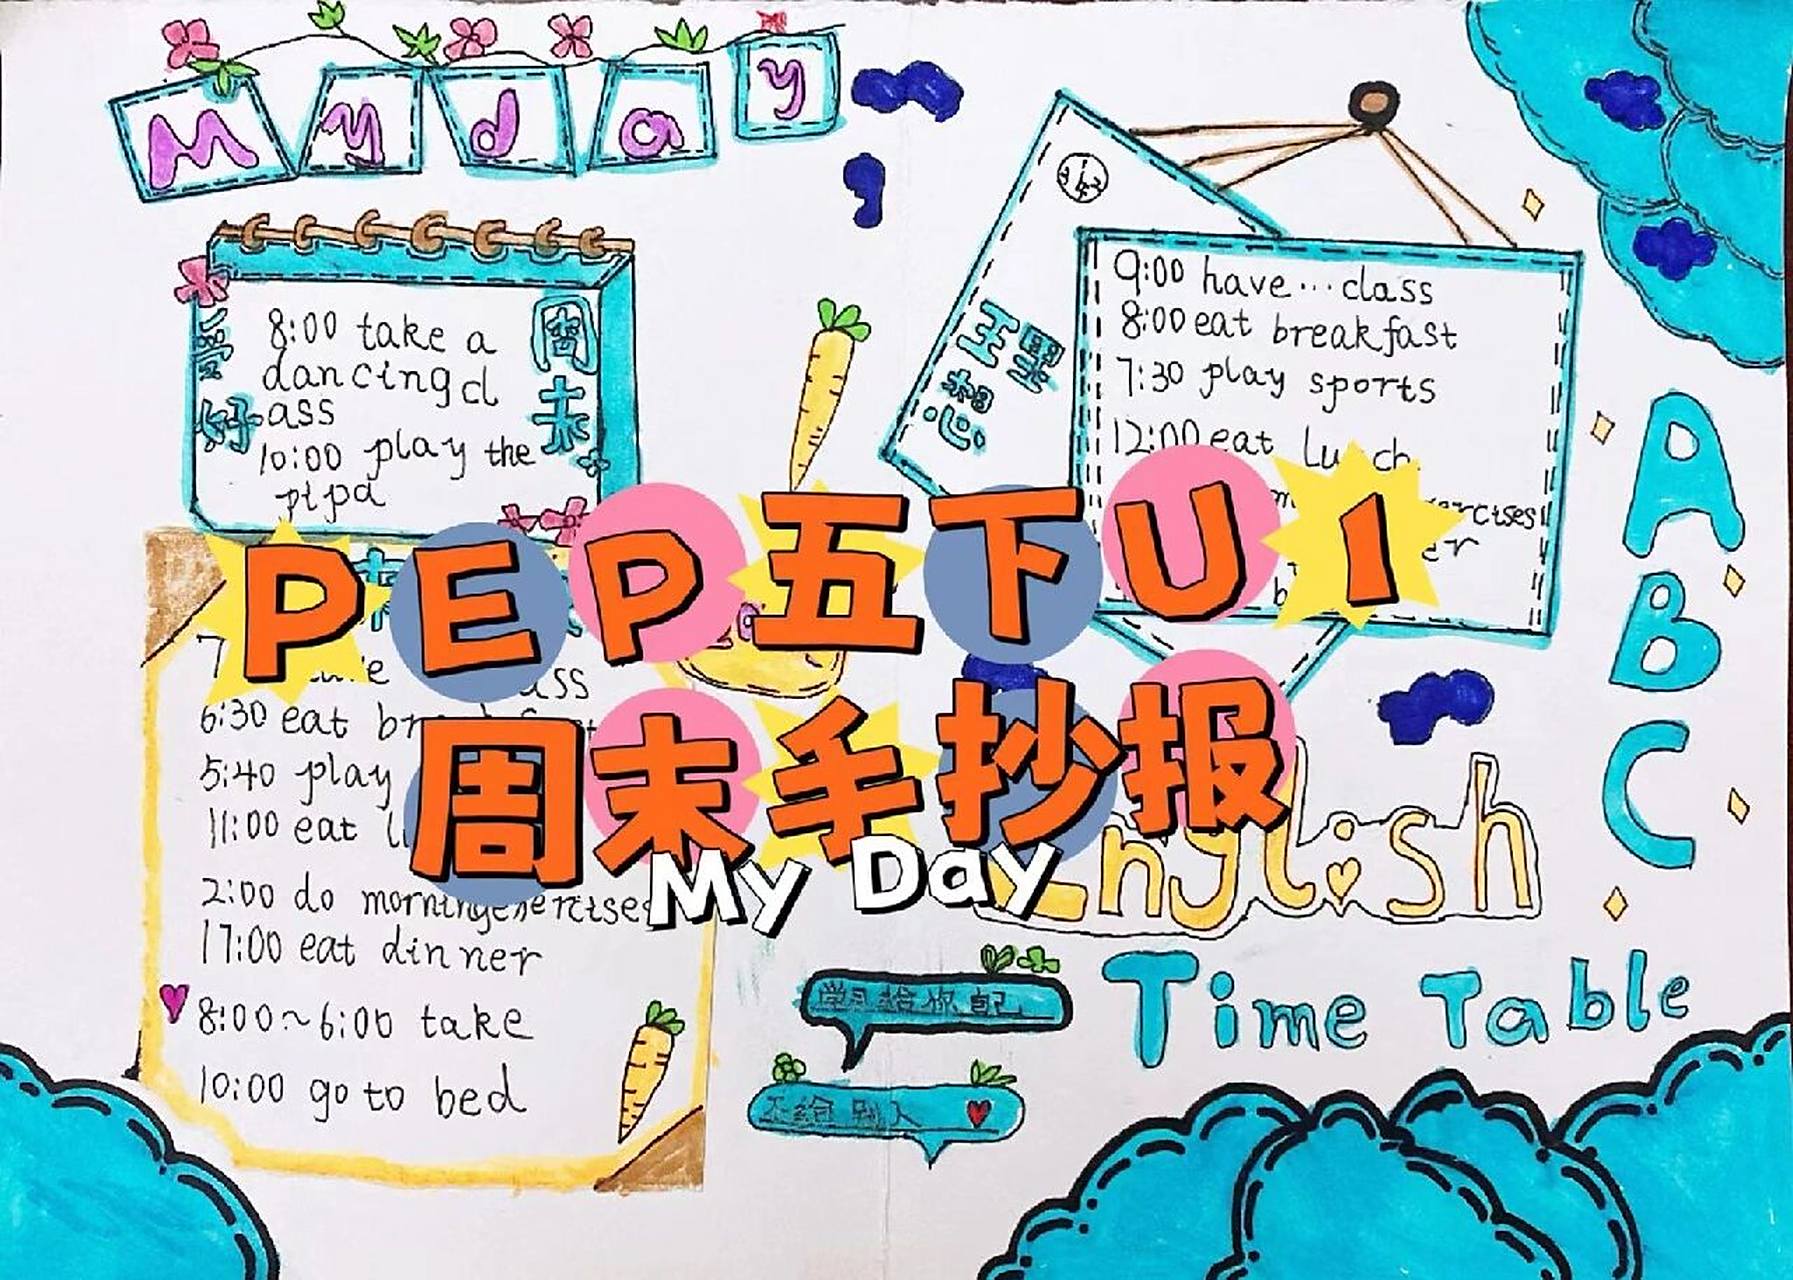 My day
爱好
周末
8:00 take a
dancing cl
ass
10:00 play the
pipa
理想
9:00 have...class
8:00 eat breakfast
7:30 play sports
12:00 eat lunch
A
B
C
PEP五下U1
周末手抄报
My Day
6:30 eat
5:40 play
11:00 eat
2:00 do morningexercises
17:00 eat dinner
8:00~6:00 take
10:00 go to bed
English
Time Table
学习给你自己
不给别人